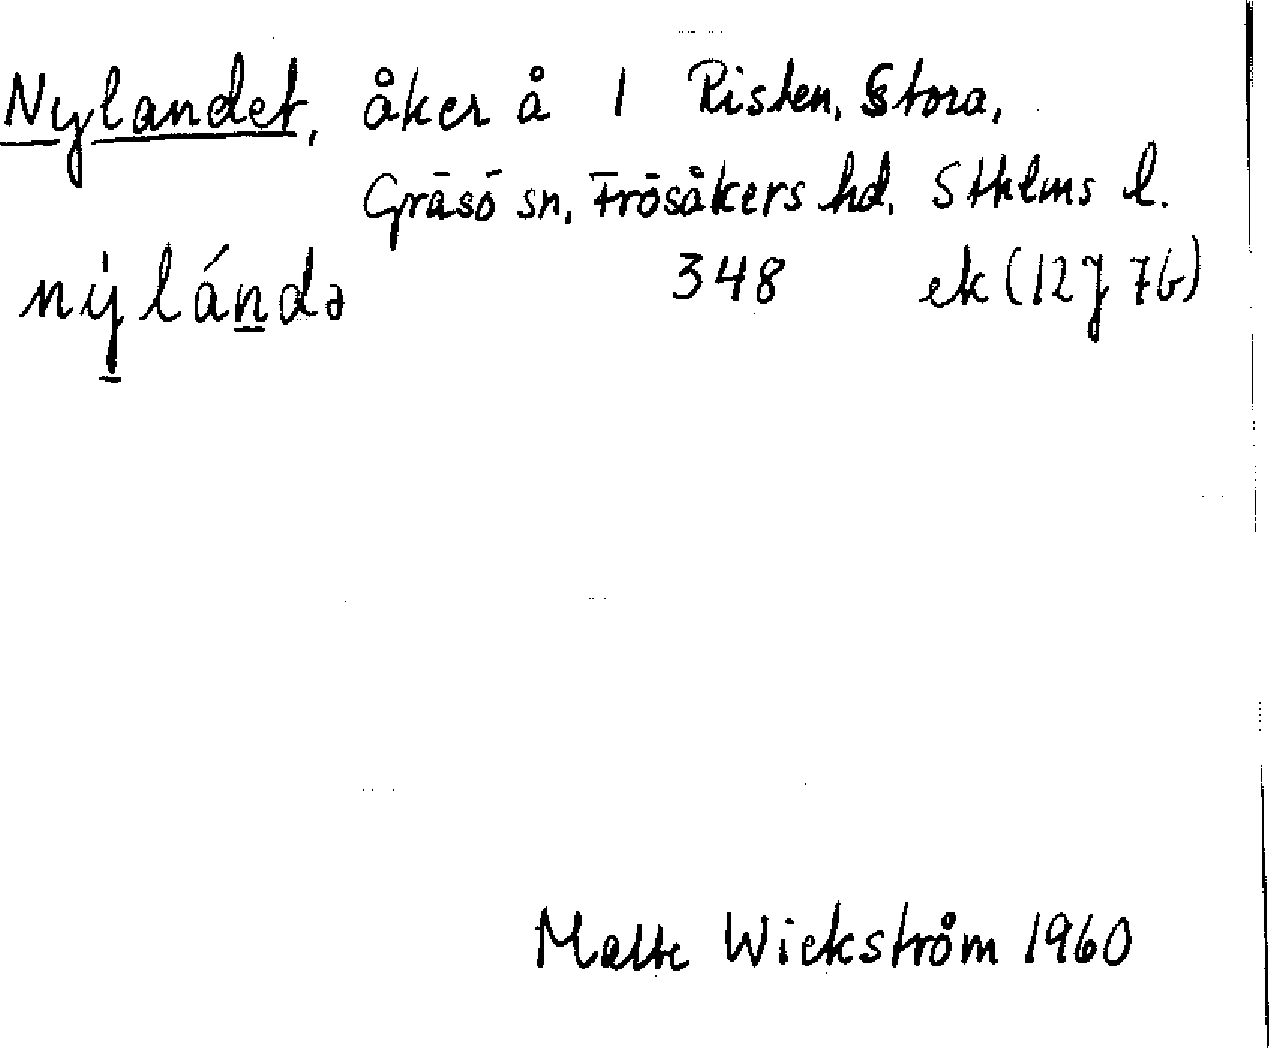 Nylandet, åker å 1 Risten, Stora,
Gräsö sn, Frösåkers hd. Sthlms l.
nýlándə 348 ek (12J 7b)
Malte Wickström 1960